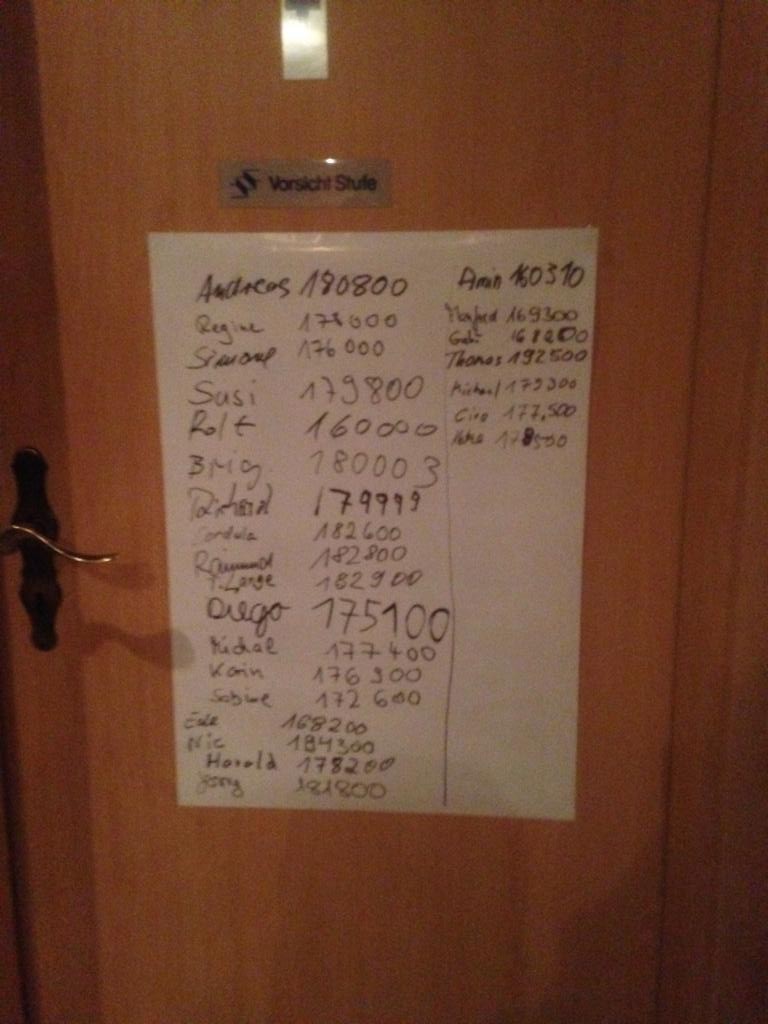 Vorsicht Stufe
Andreas 180800
Regine 178000
Simone 176 000
Susi 179800
Rolf 160000
Brig. 180003
Richard 179999
Cordula 182600
Raimund 182800
T. Lange 182900
Diego 175100
Michael 177400
Karin 176 900
Sabine 172 600
168200
Nic 194300
Harald 178200
181800
Armin 160310
Manfred 169300
Gabi 168200
Thomas 192500
Michael 179300
Ciro 177,500
178500